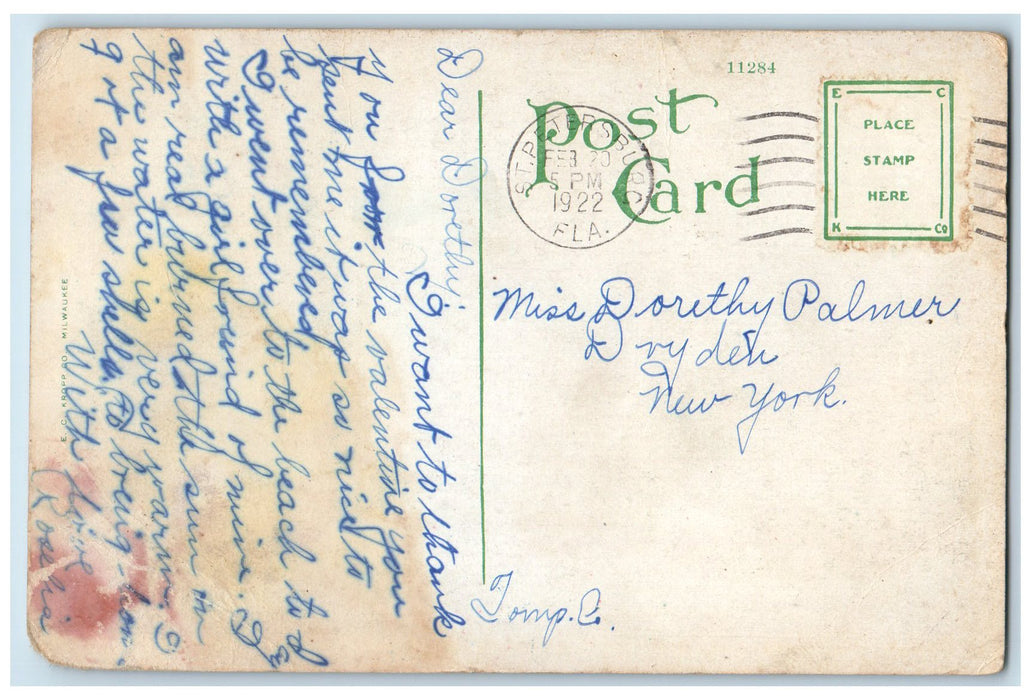 11284
Post
Card
ST. PETERSBURG
FEB 20
5 PM
1922
FLA.
E C
PLACE
STAMP
HERE
K Co
Miss Dorethy Palmer
Dryden
New York.
Tomp. C.
Dear Dorethy,
I want to thank
you from the valentine you
sent me it was so nice to
be rimembered
I went over to the beach to d
with a girl friend of mine. I
am read burned the sun on
the water is very warm. I
got a few shells to breing home
With love
E. C. KROPP CO. MILWAUKEE